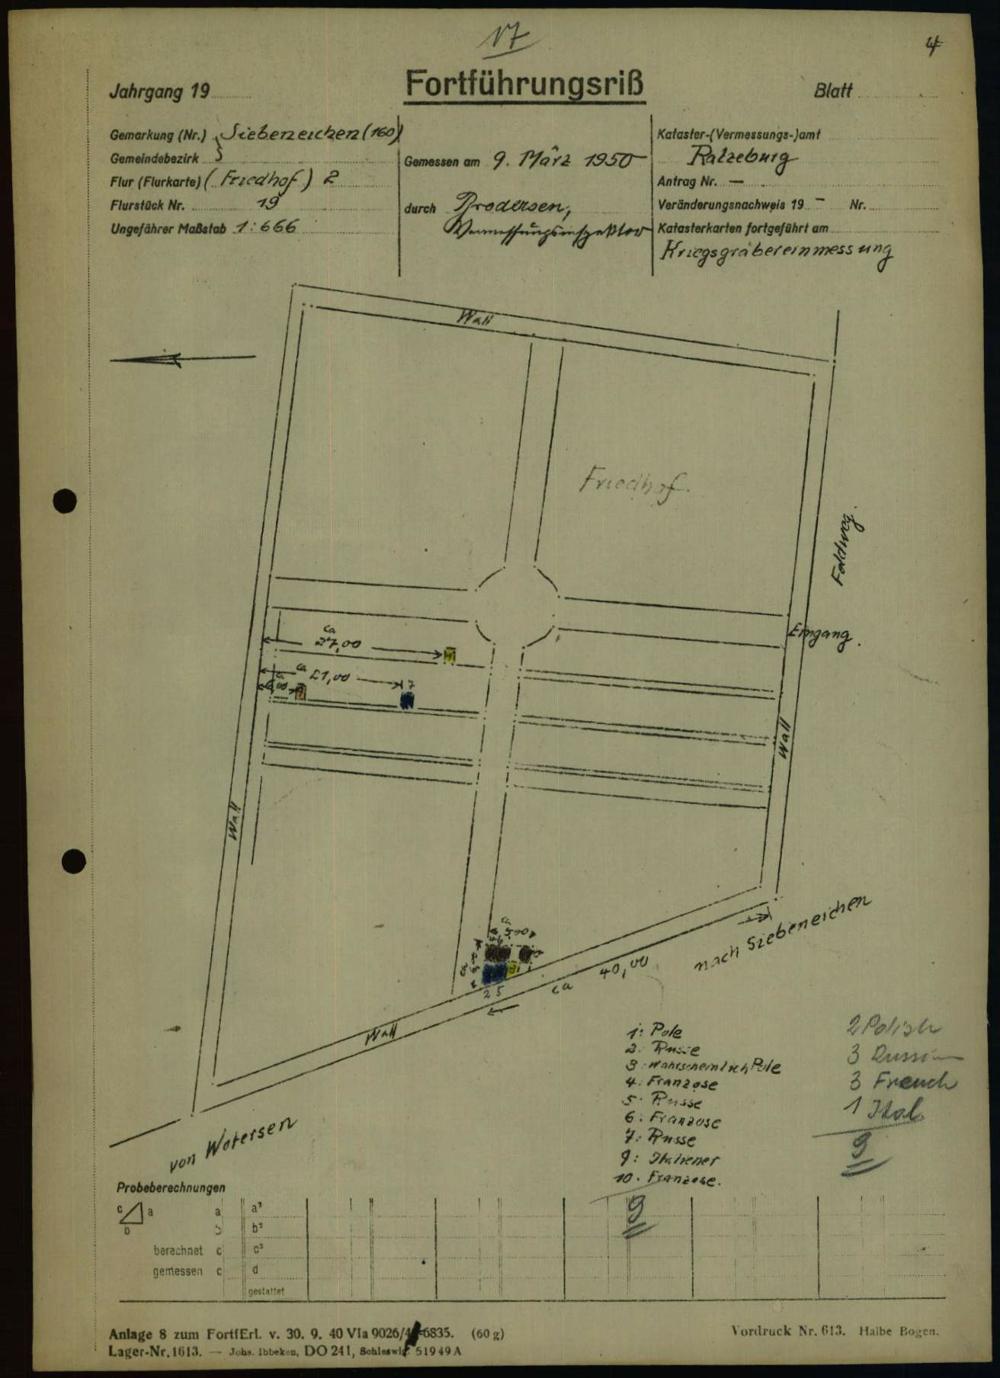 17
4
Jahrgang 19
Fortführungsriß
Blatt
Gemarkung (Nr.) Siebeneichen (160)
Gemeindebezirk
Flur (Flurkarte) (Friedhof) 2
Flurstück Nr. 19
Ungefährer Maßstab 1:666
Gemessen am 9. März 1950
durch Brodersen,
Vermessungsinspektor
Kataster-(Vermessungs-)amt
Ratzeburg
Antrag Nr. —
Veränderungsnachweis 19 — Nr.
Katasterkarten fortgeführt am
Kriegsgräbereinmessung
Wall
Friedhof.
Feldweg.
Eingang.
ca
27,00
ca
21,00
7
Wall
Wall
ca
2 5
ca 40,00
nach Siebeneichen
Wall
von Wotersen
1: Pole
2: Russe
3: wahrscheinlich Pole
4: Franzose
5: Russe
6: Franzose
7: Russe
9: Italiener
10: Franzose.
9
2 Polish
3 Russian
3 French
1 Ital
9
Probeberechnungen
c a
b
a a²
b b²
berechnet c c²
gemessen c d
gestattet
Anlage 8 zum FortfErl. v. 30. 9. 40 VIa 9026/4 -6835. (60 g)
Lager-Nr. 1613. — Johs. Ibbeken, DO 241, Schleswig 51949A
Vordruck Nr. 613. Halbe Bogen.